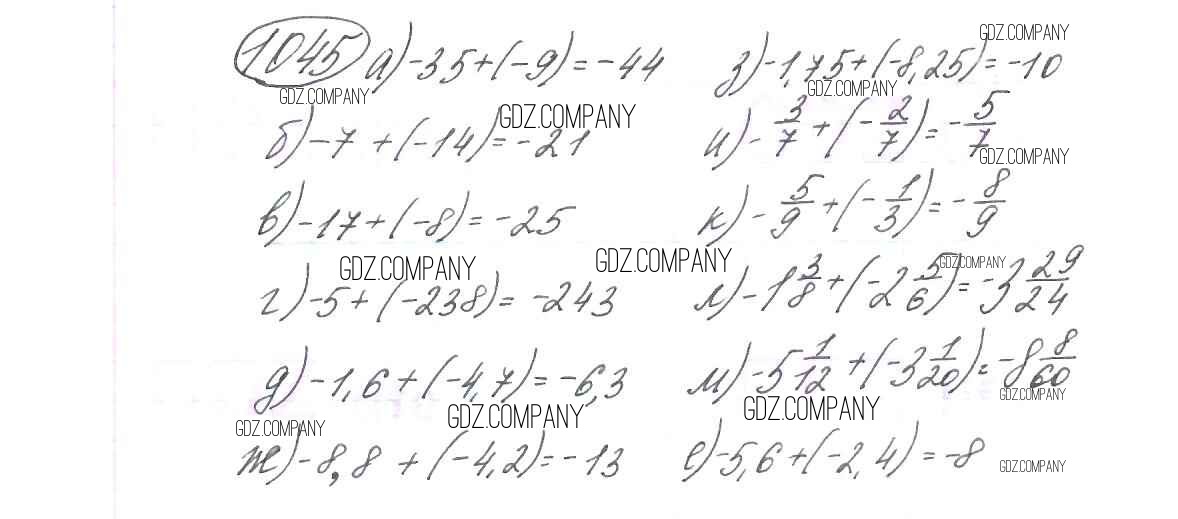 1045 а) -35+(-9)=-44
б) -7+(-14)=-21
в) -17+(-8)=-25
г) -5+(-238)=-243
д) -1,6+(-4,7)=-6,3
ж) -8,8+(-4,2)=-13
з) -1,75+(-8,25)=-10
и) -3/7+(-2/7)=-5/7
к) -5/9+(-1/3)=-8/9
л) -1 3/8+(-2 5/6)=-3 29/24
м) -5 1/12+(-3 1/20)=-8 8/60
е) -5,6+(-2,4)=-8
GDZ.COMPANY
GDZ.COMPANY
GDZ.COMPANY
GDZ.COMPANY
GDZ.COMPANY
GDZ.COMPANY
GDZ.COMPANY
GDZ.COMPANY
GDZ.COMPANY
GDZ.COMPANY
GDZ.COMPANY
GDZ.COMPANY
GDZ.COMPANY